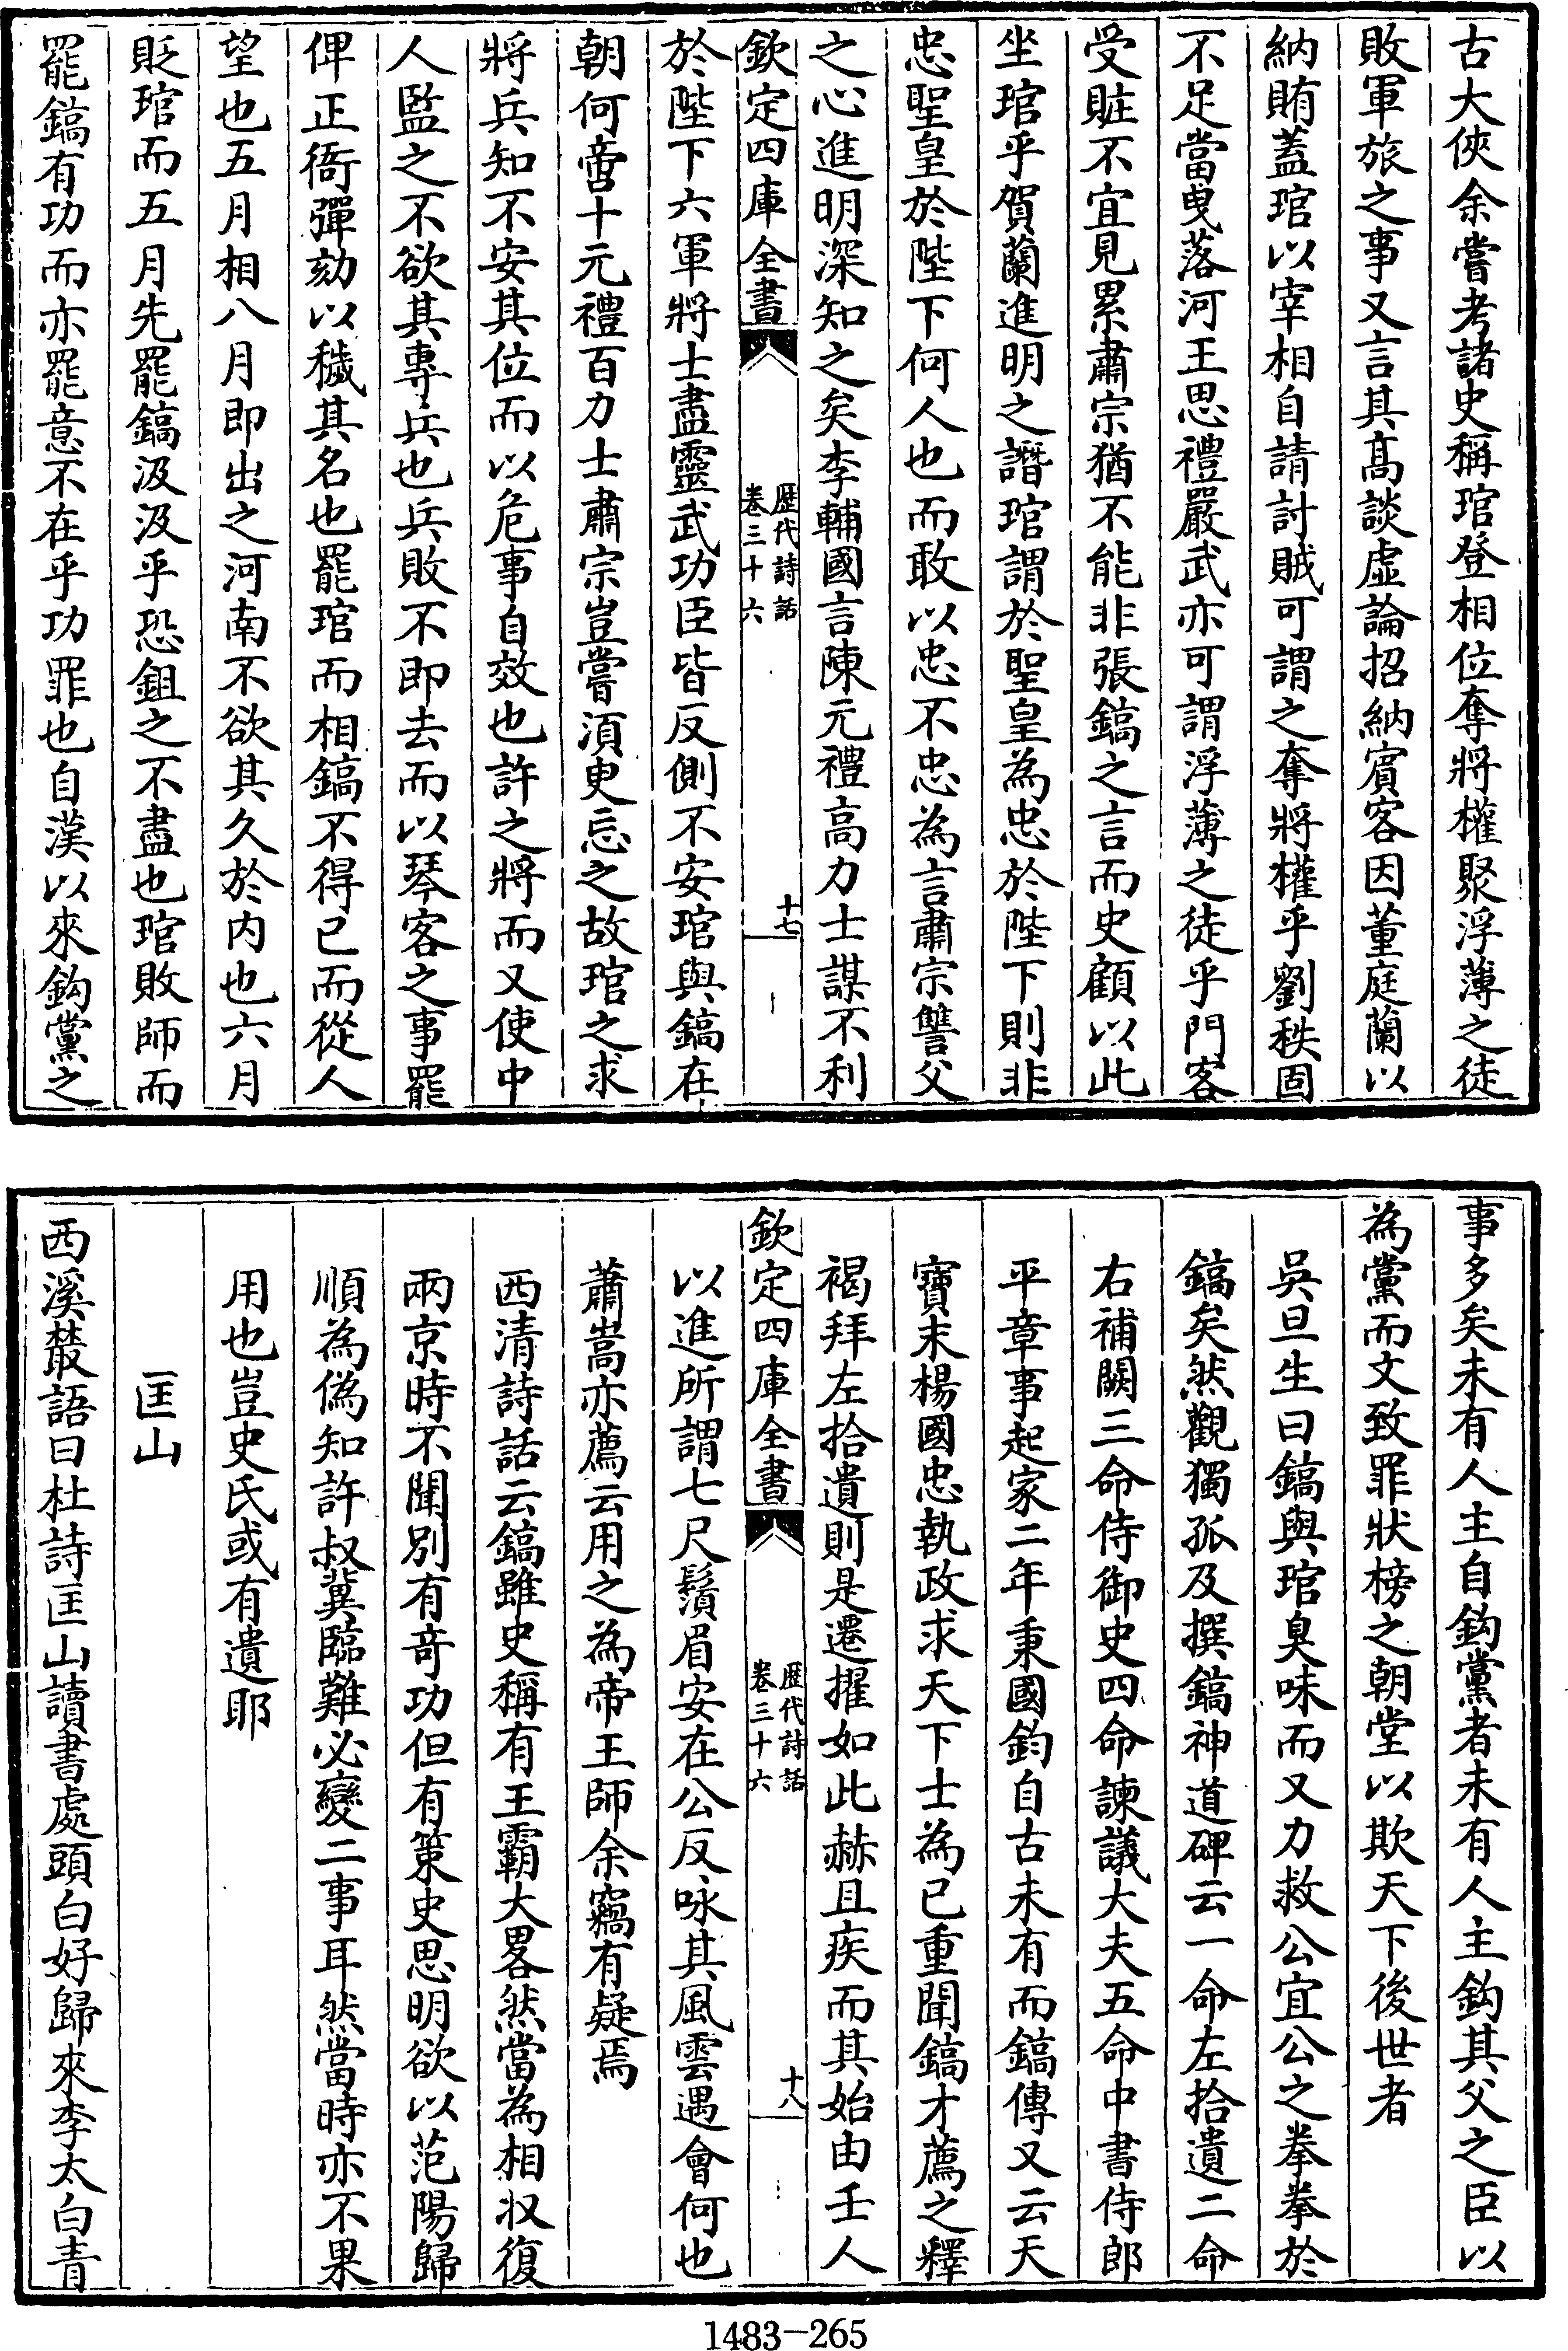 古大俠余嘗考諸史稱琯登相位奪將權聚浮薄之徒
敗軍旅之事又言其髙談虛論招納賓客因董庭蘭以
納賄蓋琯以宰相自請討賊可謂之奪將權乎劉秩固
不足當曳落河王思禮嚴武亦可謂浮薄之徒乎門客
受賍不宜見累肅宗猶不能非張鎬之言而史顧以此
坐琯乎賀蘭進明之譖琯謂於聖皇為忠於陛下則非
忠聖皇於陛下何人也而敢以忠不忠為言肅宗讐父
之心進明深知之矣李輔國言陳元禮高力士謀不利
欽定四庫全書
歴代詩話
卷三十六
十七
於陛下六軍將士盡靈武功臣皆反側不安琯與鎬在
朝何啻十元禮百力士肅宗豈嘗湏臾忘之故琯之求
將兵知不安其位而以危事自效也許之將而又使中
人監之不欲其專兵也兵敗不即去而以琴客之事罷
俾正衙彈劾以穢其名也罷琯而相鎬不得已而從人
望也五月相八月即出之河南不欲其久於内也六月
貶琯而五月先罷鎬汲汲乎恐鉏之不盡也琯敗師而
罷鎬有功而亦罷意不在乎功罪也自漢以來鈎黨之
事多矣未有人主自鈎黨者未有人主鈎其父之臣以
為黨而文致罪狀榜之朝堂以欺天下後世者
吳旦生曰鎬與琯臭味而又力救公宜公之拳拳於
鎬矣然觀獨孤及撰鎬神道碑云一命左拾遺二命
右補闕三命侍御史四命諫議大夫五命中書侍郎
平章事起家二年秉國鈞自古未有而鎬傳又云天
寶末楊國忠執政求天下士為已重聞鎬才薦之釋
褐拜左拾遺則是遷擢如此赫且疾而其始由壬人
欽定四庫全書
歴代詩話
卷三十六
十八
以進所謂七尺鬚眉安在公反咏其風雲遇會何也
蕭嵩亦薦云用之為帝王師余竊有疑焉
西清詩話云鎬雖史稱有王霸大畧然當為相收復
兩京時不聞別有竒功但有策史思明欲以范陽歸
順為偽知許叔冀臨難必變二事耳然當時亦不果
用也豈史氏或有遺耶
匡山
西溪叢語曰杜詩匡山讀書處頭白好歸來李太白青
1483-265